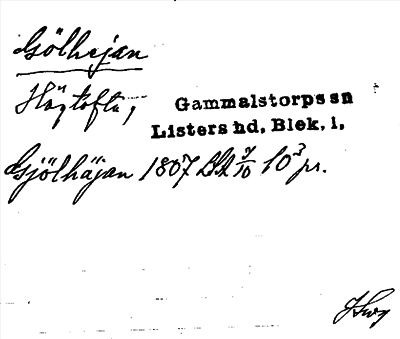 Gölhejan
Högtofta,
Gammalstorps sn
Listers hd, Blek. l,
Gjölhäjan 1807 LSA 7/10 103 pr.